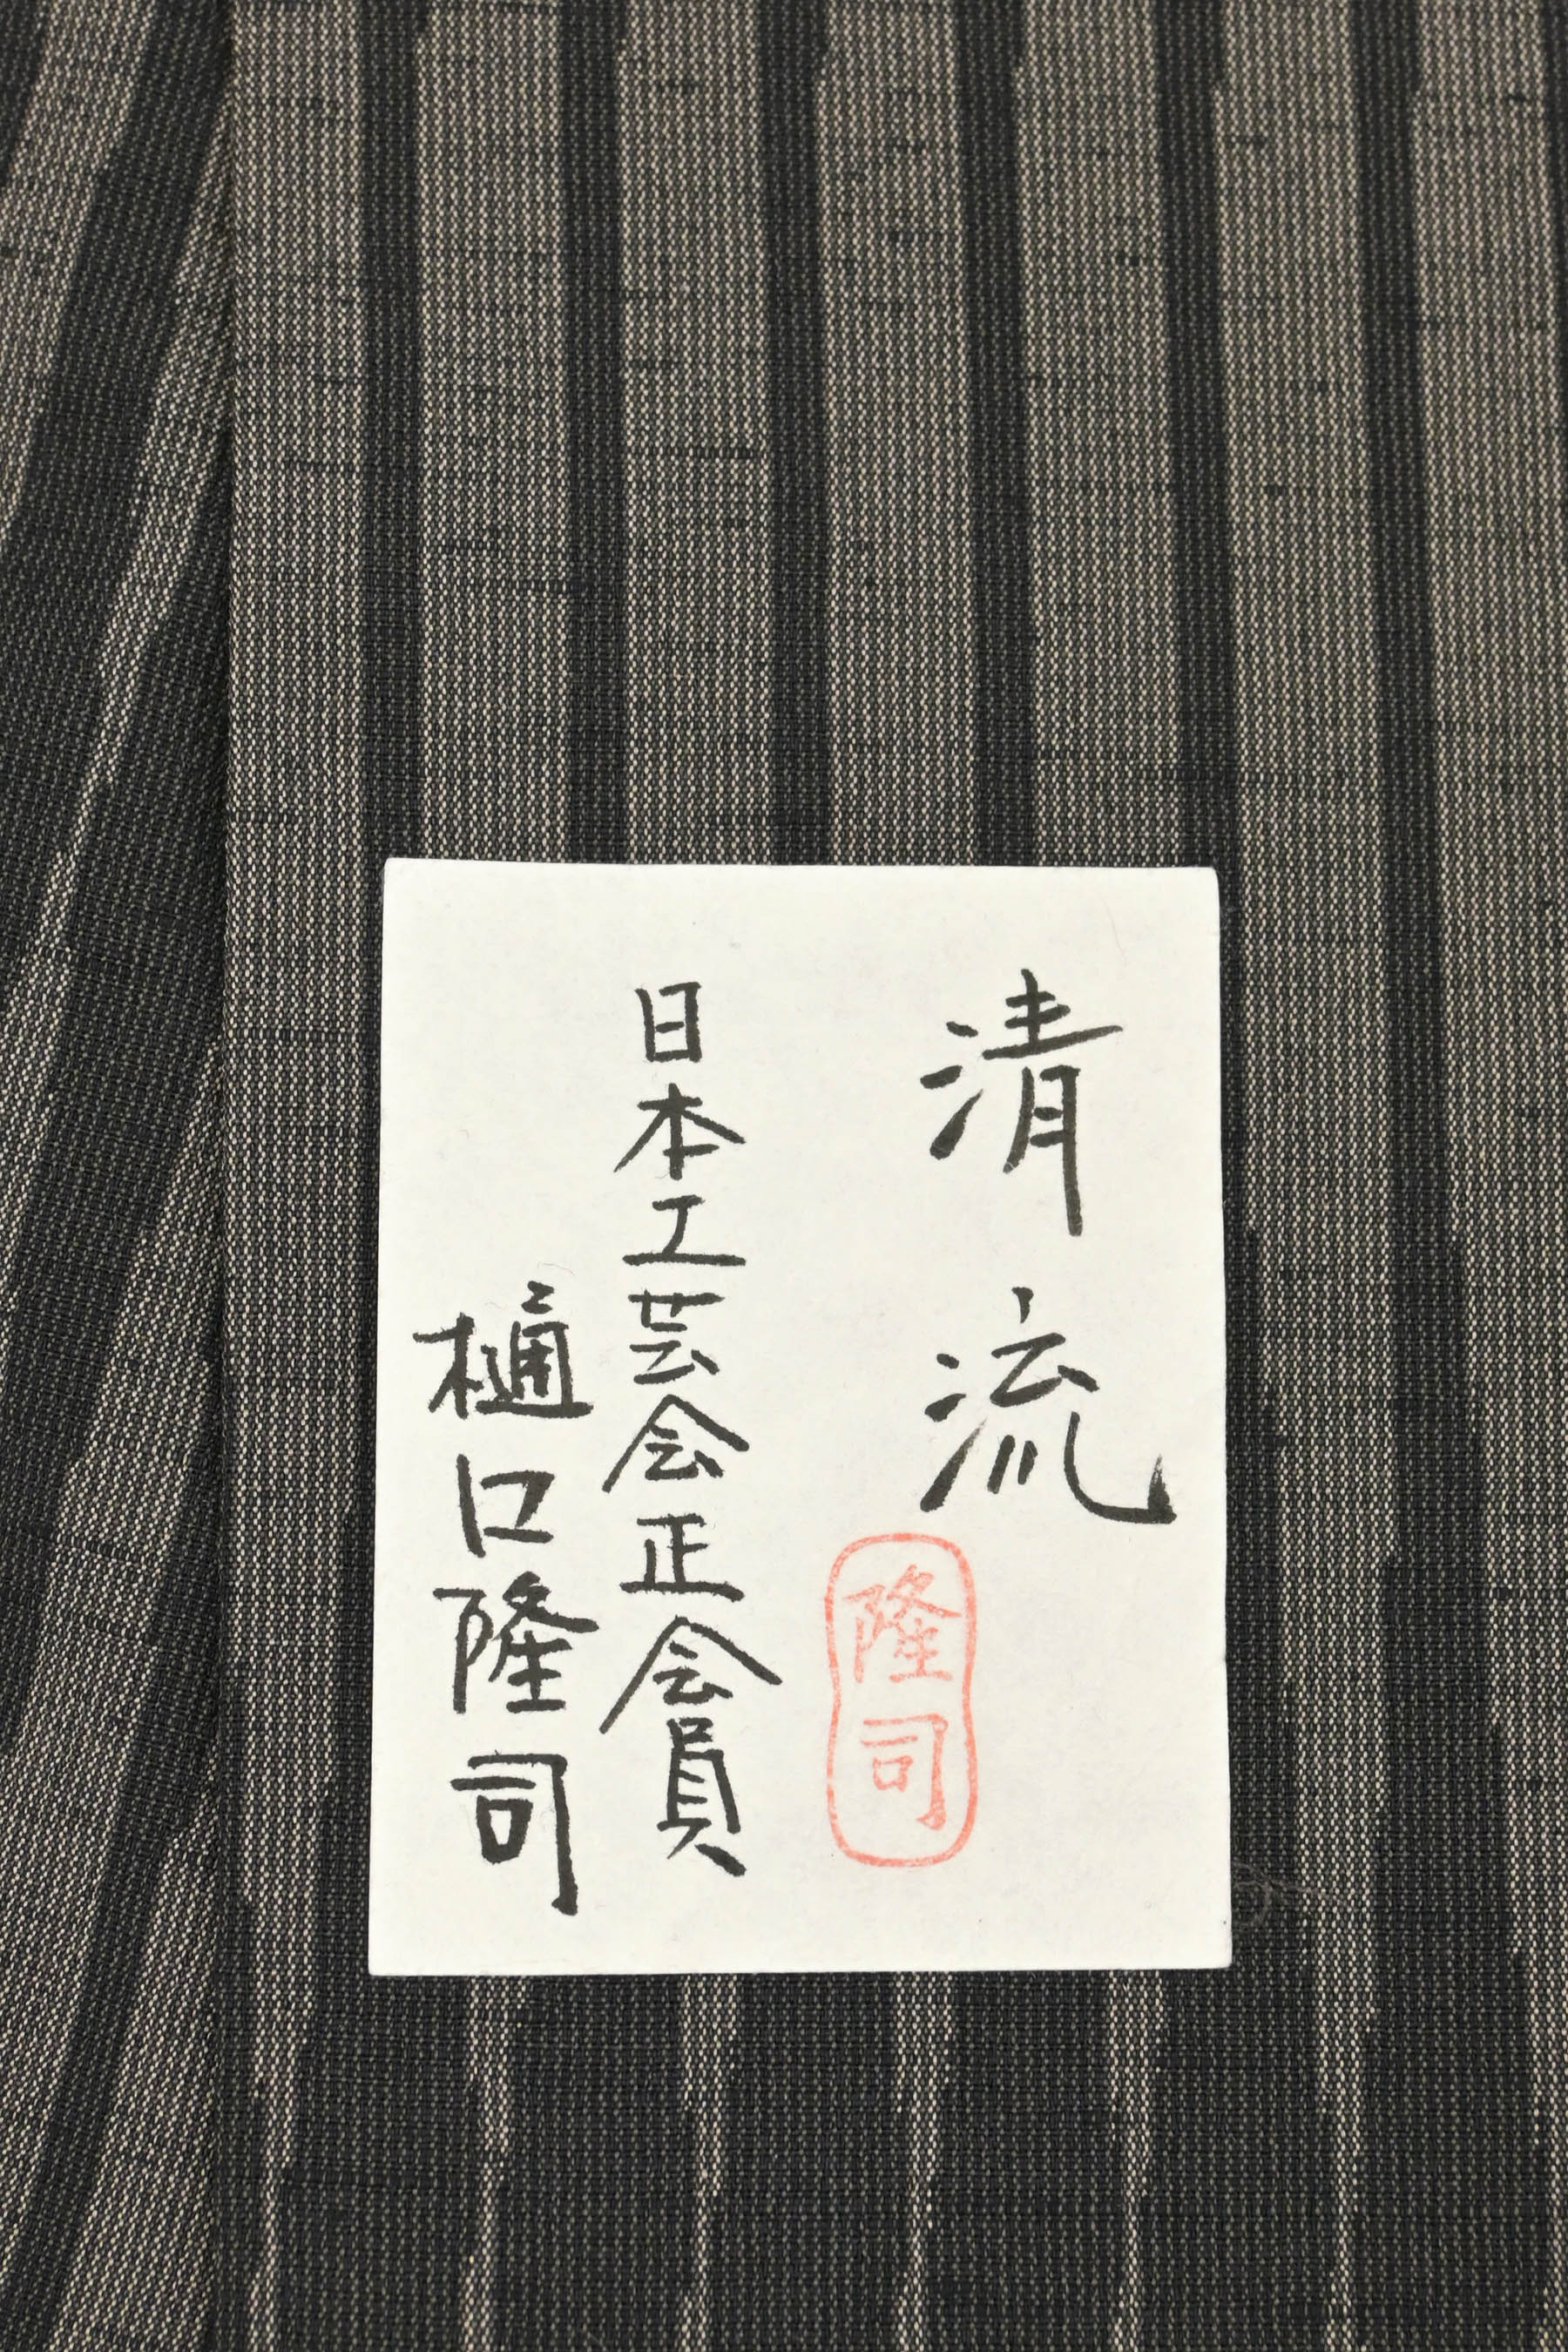 清流
隆司
日本工芸会正会員
樋口隆司